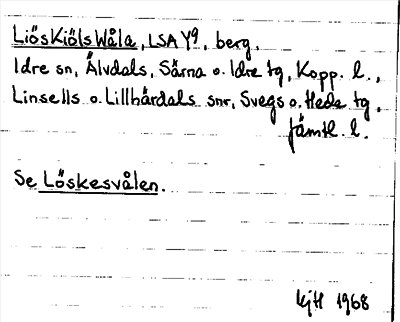 LiösKiölsWåla, LSA Y9, berg.
Idre sn, Älvdals, Särna o. Idre tg, Kopp. l.,
Linsells o. Lillhärdals snr, Svegs o. Hede tg,
Jämtl. l.
Se Löskesvålen.
1968